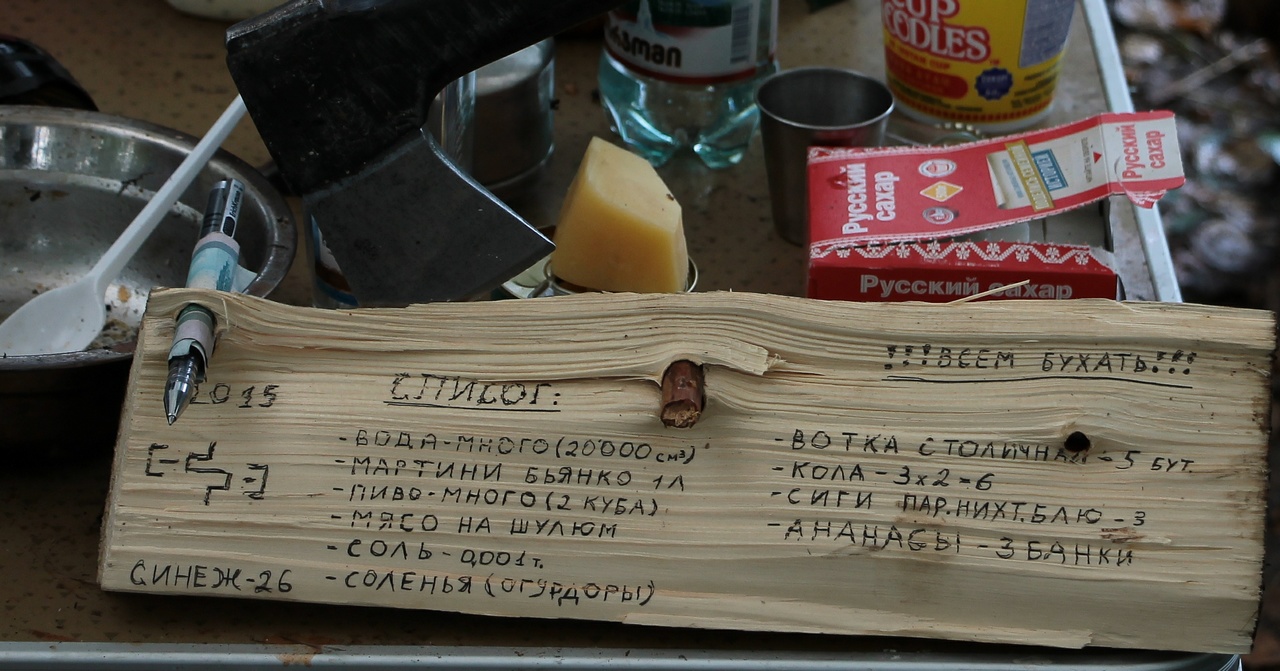 CUP
NOODLES
Русский
сахар
Русский
сахар
Русский сахар
!!!ВСЕМ БУХАТЬ!!!
2015
СПИСОГ:
-ВОДА-МНОГО(20'000 см³)
-МАРТИНИ БЬЯНКО 1Л
-ПИВО-МНОГО(2 КУБА)
-МЯСО НА ШУЛЮМ
-СОЛЬ-0,001т.
-СОЛЕНЬЯ(ОГУРДОРЫ)
СИНЕЖ-26
-ВОТКА СТОЛИЧНАЯ-5 БУТ.
-КОЛА-3х2=6
-СИГИ ПАР.НИХТ.БЛЮ-3
-АНАНАСЫ-3 БАНКИ